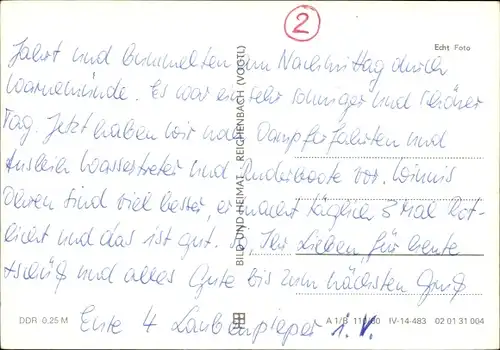 2
Echt Foto
Fahrt und bummelten am Nachmittag durch
Warnemünde. Es war ein sehr sonniger und schöner
Tag. Jetzt haben wir noch Dampferfahrten und
Ausleih Wassertreter und Ruderboote vor.
Ohren sind viel besser, er macht täglich 3 Mal Rot-
licht und das ist gut. So, Ihr Lieben für heute
tschüß und alles Gute bis zum nächsten Gruß
Eure 4 Laubenpieper i.V.
BILD UND HEIMAT REICHENBACH (VOGTL)
DDR 0,25 M
A 1/B 110/80 IV-14-483 02 01 31 004